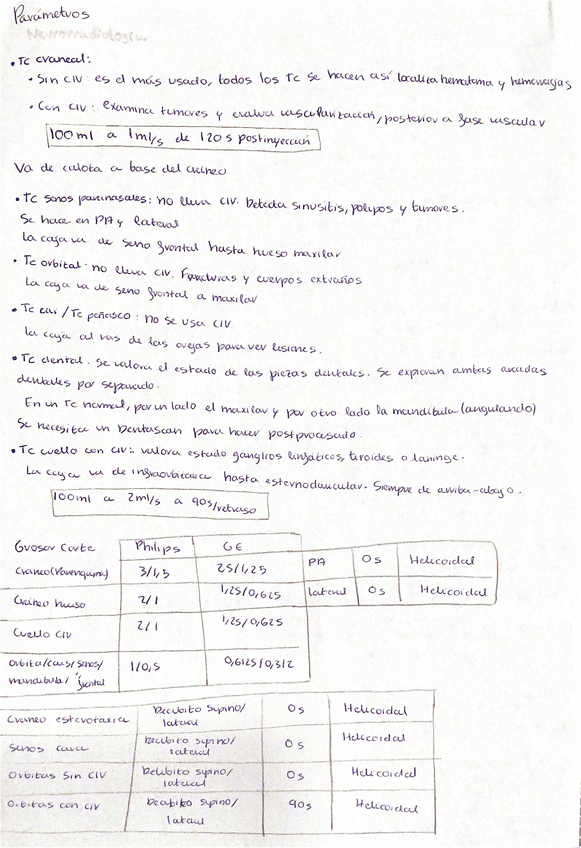 Parámetros
• Tc craneal:
• Sin CIV: es el más usado, todos los Tc se hacen así localiza hematoma y hemorragias
• Con CIV: examina tumores y evalua vascularización, posterior a fase vascular
100ml a 1ml/s de 120s postinyección
Va de calota a base del cráneo
• Tc senos paranasales: no lleva CIV. Detecta sinusitis, pólipos y tumores.
Se hace en PA y lateral
La caja va de seno frontal hasta hueso maxilar
• Tc orbital: no lleva CIV. Fracturas y cuerpos extraños
La caja va de seno frontal a maxilar
• Tc cai / Tc peñasco: no se usa CIV
La caja al ras de las orejas para ver lesiones.
• Tc dental. Se valora el estado de las piezas dentales. Se exploran ambas arcadas
dentales por separado.
En un Tc normal, por un lado el maxilar y por otro lado la mandíbula (angulando)
Se necesita un Dentascan para hacer postprocesado.
• Tc cuello con CIV: valora estado ganglios linfáticos, tiroides o laringe.
La caja va de infraorbitaria hasta esternoclavicular. Siempre de arriba-abajo.
100ml a 2ml/s a 90s/retraso
Grosor Corte Philips GE
Craneo (Parenquima) 3/1,5 25/1,25 PA 0s Helicoidal
Cráneo hueso 2/1 1,25/0,625 lateral 0s Helicoidal
Cuello CIV 2/1 1,25/0,625
orbita/cais/senos/ 1/0,5 0,6125/0,312
mandibula/dental
Craneo estereotaxia Decúbito supino/ 0s Helicoidal
lateral
Senos cara Decúbito supino/ 0s Helicoidal
lateral
Orbitas Sin CIV Decúbito supino/ 0s Helicoidal
lateral
Orbitas con CIV Decúbito supino/ 90s Helicoidal
lateral